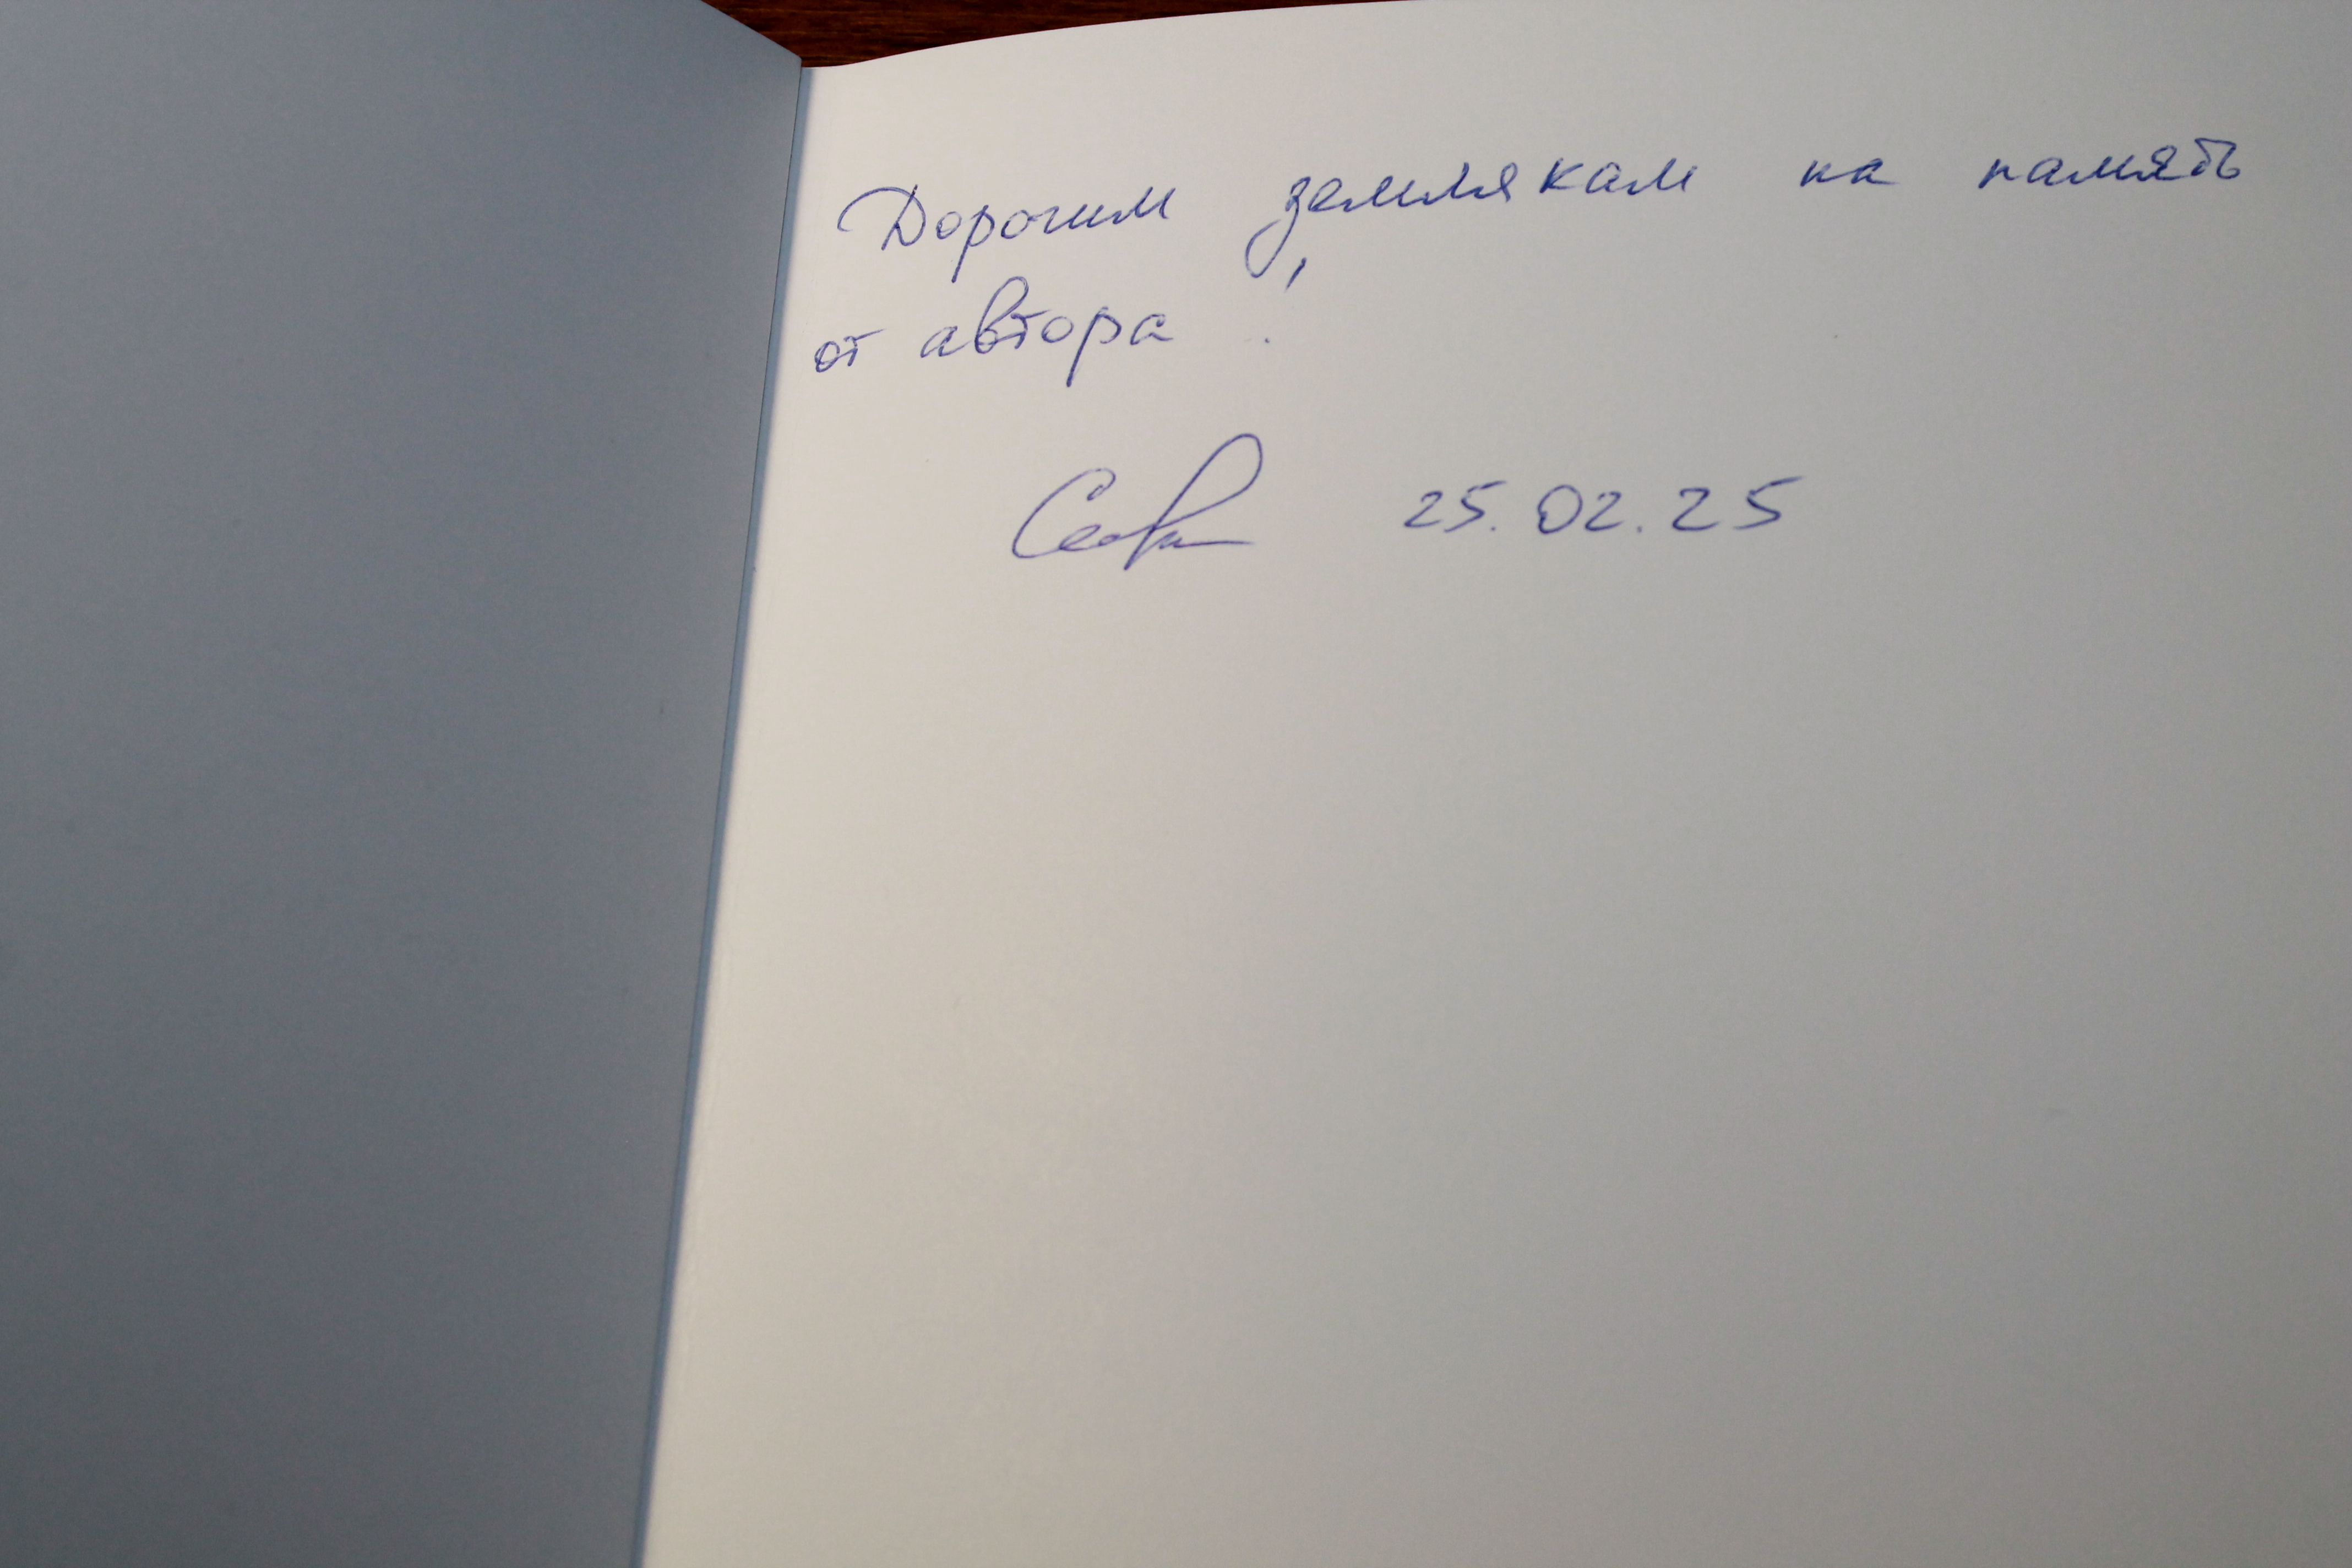 Дорогим землякам на память
от автора!
25.02.25